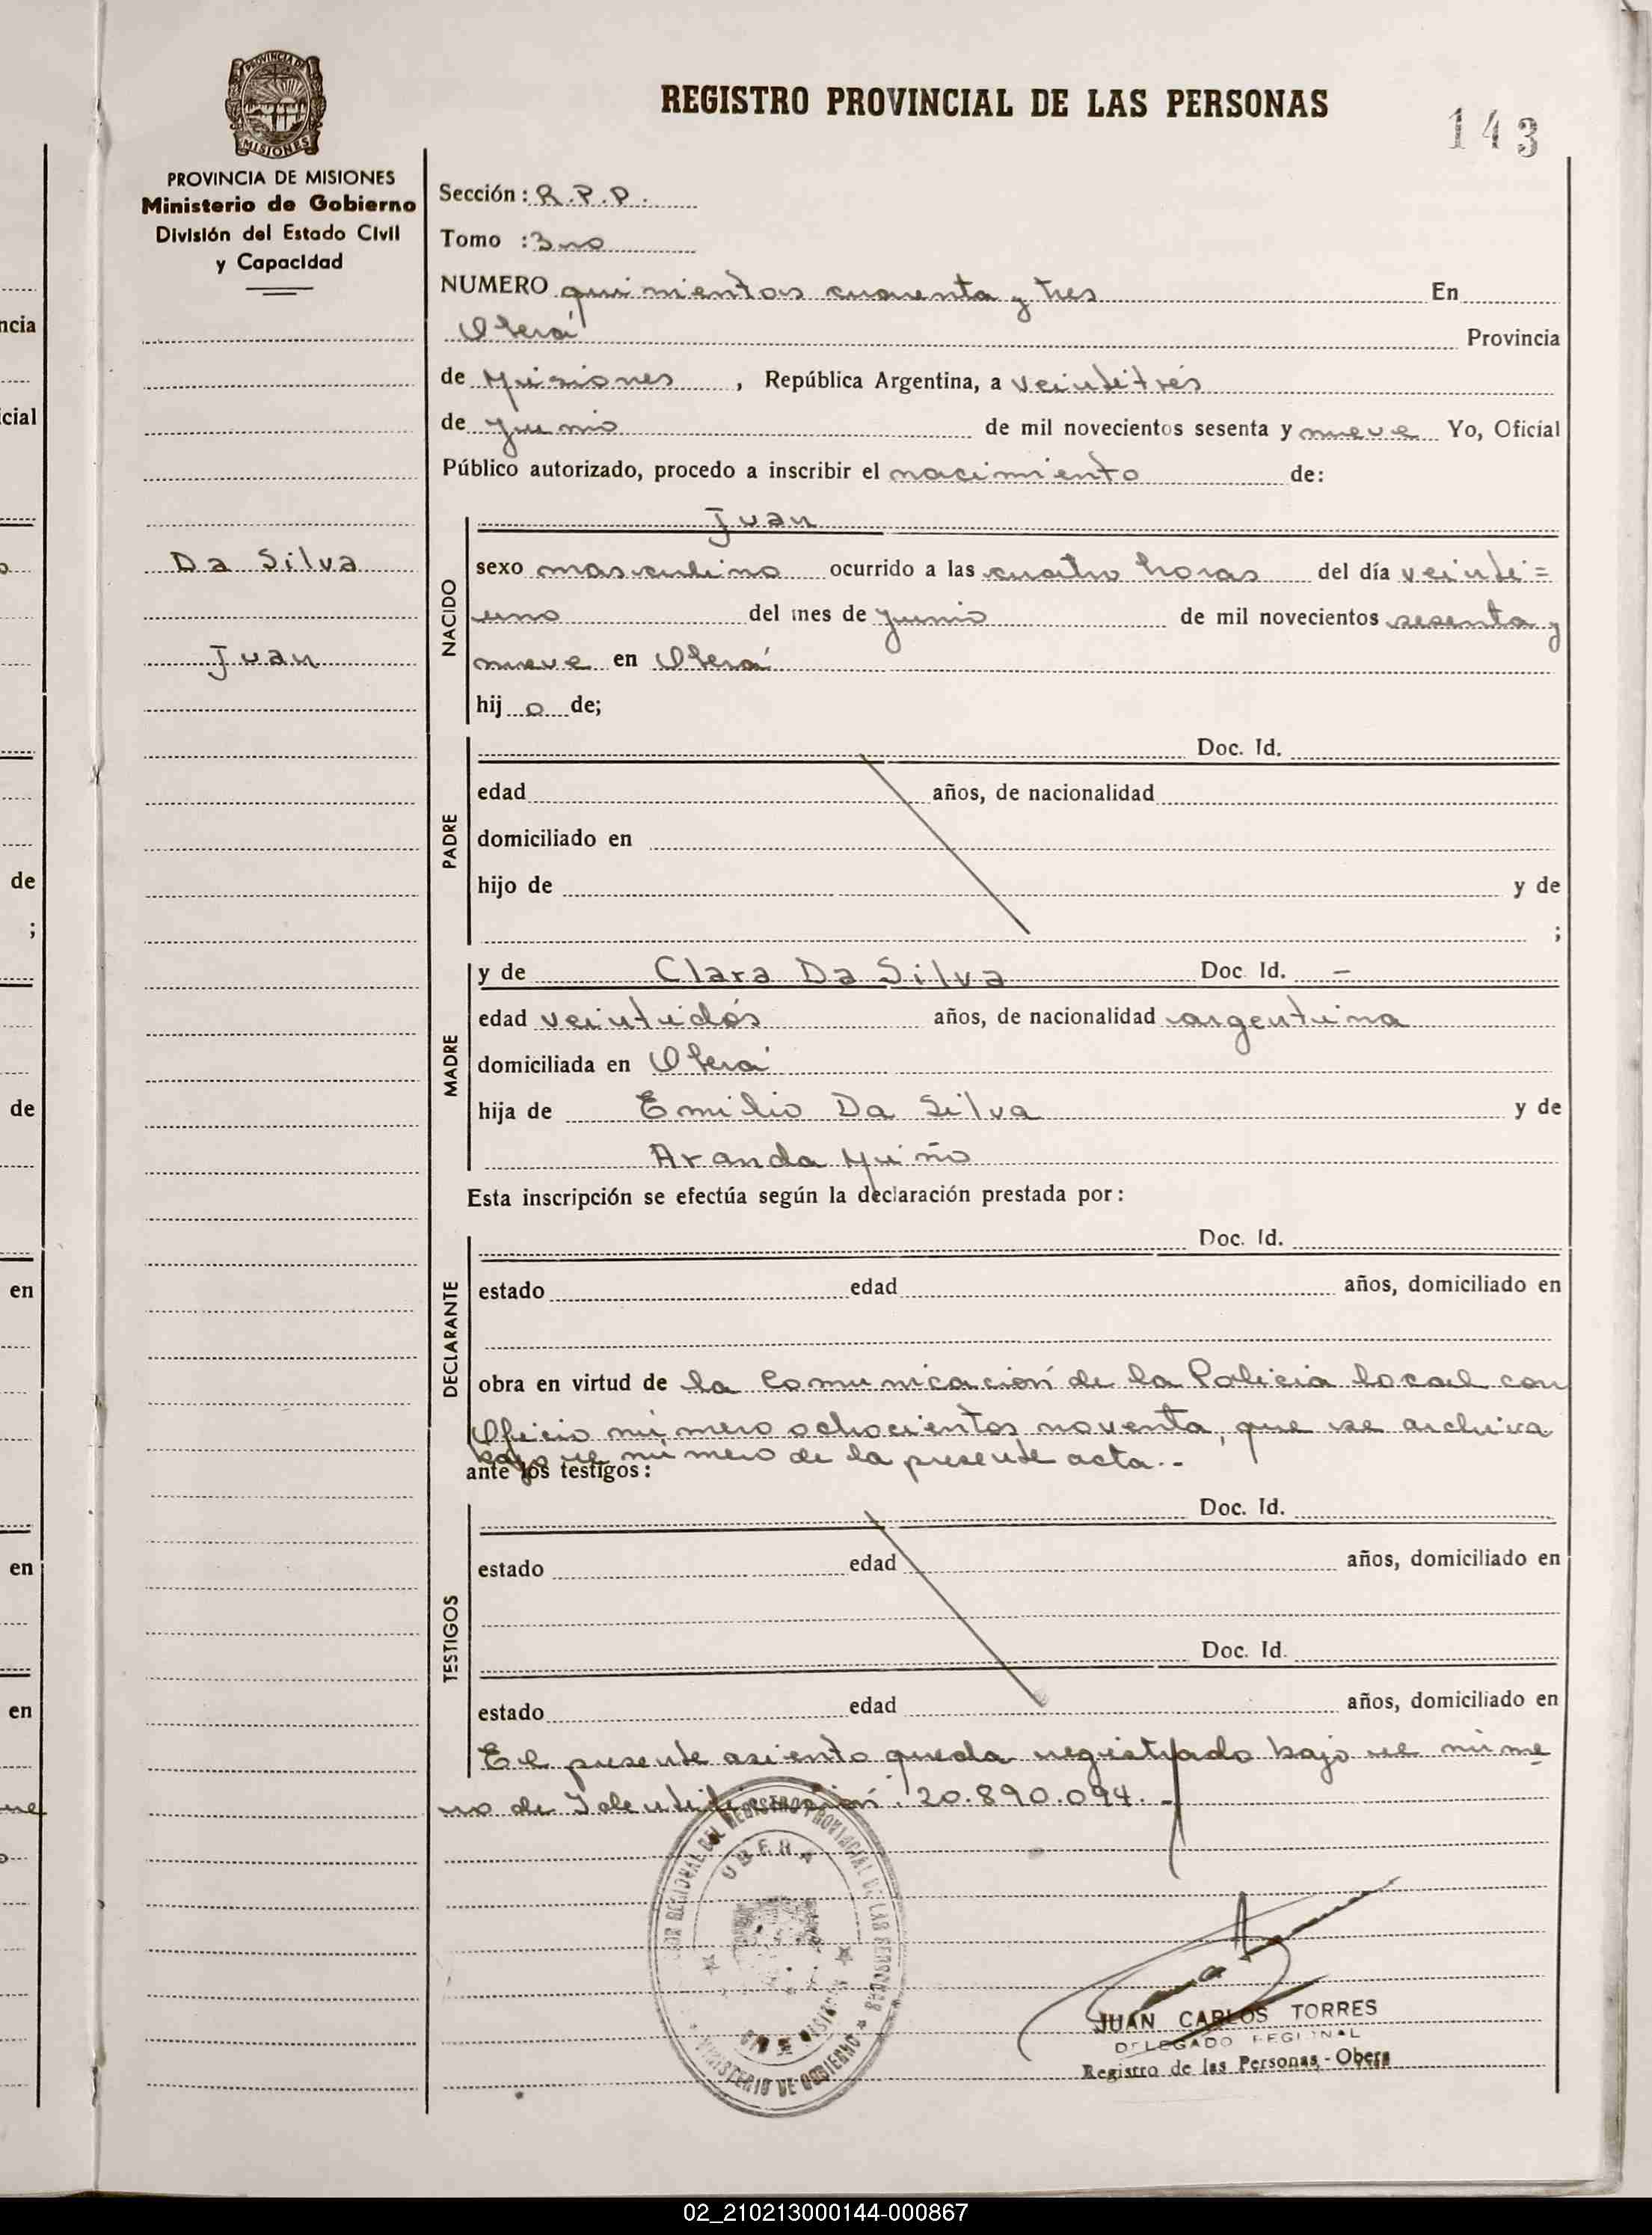 PROVINCIA DE
MISIONES
PROVINCIA DE MISIONES
Ministerio de Gobierno
División del Estado Civil
y Capacidad
Da Silva
Juan
REGISTRO PROVINCIAL DE LAS PERSONAS
143
Sección: R.P.P.
Tomo : 3ro
NUMERO quinientos cuarenta y tres En
Oberá Provincia
de Misiones , República Argentina, a veintitrés
de Junio de mil novecientos sesenta y nueve Yo, Oficial
Público autorizado, procedo a inscribir el nacimiento de:
NACIDO
Juan
sexo masculino ocurrido a las cuatro horas del día veinti=
uno del mes de Junio de mil novecientos sesenta y
nueve en Oberá
hij o de;
PADRE
Doc. Id.
edad años, de nacionalidad
domiciliado en
hijo de y de
;
MADRE
y de Clara Da Silva Doc. Id. –
edad veintidós años, de nacionalidad argentina
domiciliada en Oberá
hija de Emilio Da Silva y de
Aranda Miño
Esta inscripción se efectúa según la declaración prestada por:
DECLARANTE
Doc. Id.
estado edad años, domiciliado en
obra en virtud de la Comunicación de la Policia local con
Oficio número ochocientos noventa, que se archiva
bajo el número de la presente acta.-
ante los testigos:
TESTIGOS
Doc. Id.
estado edad años, domiciliado en
Doc. Id.
estado edad años, domiciliado en
El presente asiento queda registrado bajo el núme
ro de Identificación: 20.890.094.-
REGIONAL DEL REGISTRO PROVINCIAL DE LAS PERSONAS
OBERA
MINISTERIO DE GOBIERNO
JUAN CARLOS TORRES
DELEGADO REGIONAL
Registro de las Personas - Obera
ncia
icial
de
;
de
en
en
en
02_210213000144-000867